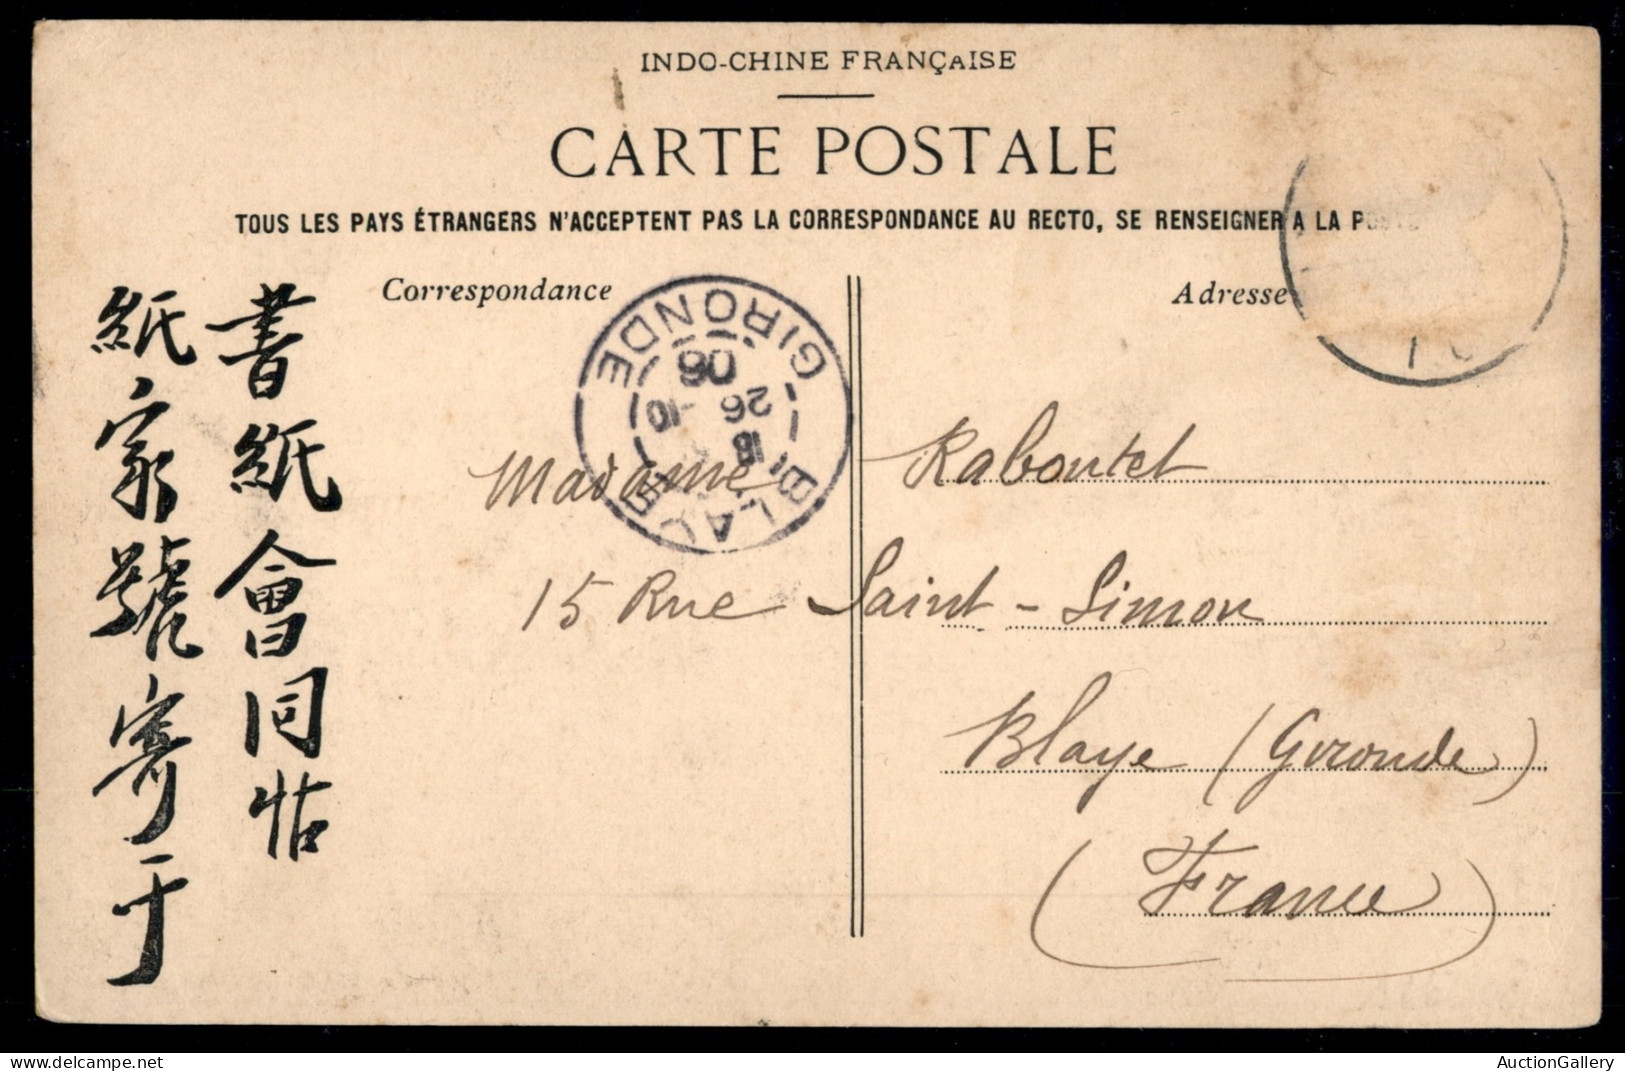 INDO-CHINE FRANÇAISE
CARTE POSTALE
TOUS LES PAYS ÉTRANGERS N'ACCEPTENT PAS LA CORRESPONDANCE AU RECTO, SE RENSEIGNER A LA POSTE
Correspondance
Adresse
書紙會同帖
紙家號寄于
BLAYE
GIRONDE
26 -10
06
Madame Raboutet
15 Rue Saint-Simon
Blaye (Gironde)
(France)
AuctionGallery